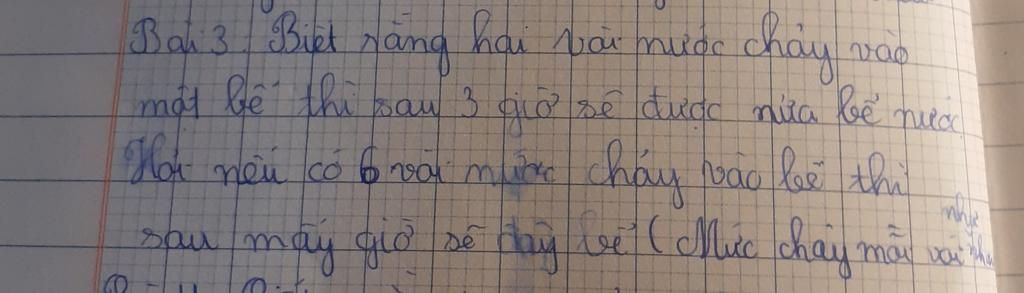 Bài 3. Biết rằng hai vòi nước chảy vào
một bể thì sau 3 giờ sẽ được nửa bể nước
Hỏi nếu có 6 vòi nước chảy vào bể thì
sau mấy giờ sẽ đầy bể (Mức chảy mỗi vòi như